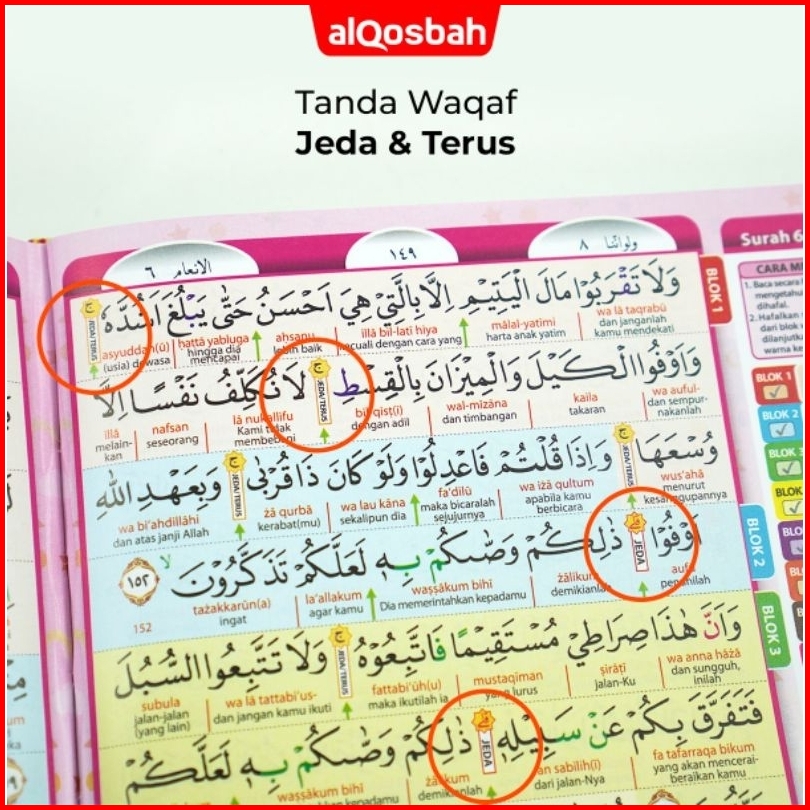 alQosbah
Tanda Waqaf
Jeda & Terus
الانعام ٦
١٤٩
ولواننا ٨
Surah 6
وَلَا تَقْرَبُوْا مَالَ الْيَتِيْمِ اِلَّا بِالَّتِيْ هِيَ اَحْسَنُ حَتّٰى يَبْلُغَ اَشُدَّهٗ ۚ
JEDA/TERUS
wa lā taqrabū
dan janganlah kamu mendekati
mālal-yatīmi
harta anak yatim
illā bil-latī hiya
kecuali dengan cara yang
aḥsanu
lebih baik
ḥattā yabluga
hingga dia mencapai
asyuddah(ū)
(usia) dewasa
BLOK 1
وَاَوْفُوا الْكَيْلَ وَالْمِيْزَانَ بِالْقِسْطِ ۚ لَا نُكَلِّفُ نَفْسًا اِلَّا
JEDA/TERUS
wa auful-
dan sempurnakanlah
kaila
takaran
wal-mīzāna
dan timbangan
bil-qisṭ(i)
dengan adil
lā nukallifu
Kami tidak membebani
nafsan
seseorang
illā
melainkan
وُسْعَهَا ۚ وَاِذَا قُلْتُمْ فَاعْدِلُوْا وَلَوْ كَانَ ذَا قُرْبٰى ۚ وَبِعَهْدِ اللّٰهِ
JEDA/TERUS
JEDA/TERUS
wus'ahā
menurut kesanggupannya
wa iżā qultum
apabila kamu berbicara
fa'dilū
maka bicaralah sejujurnya
wa lau kāna
sekalipun dia
żā qurbā
kerabat(mu)
wa bi'ahdillāhi
dan atas janji Allah
اَوْفُوْا ۗ ذٰلِكُمْ وَصّٰىكُمْ بِهٖ لَعَلَّكُمْ تَذَكَّرُوْنَ ۙ ١٥٢
JEDA
aufū
penuhilah
żālikum
demikianlah
waṣṣākum bihī
Dia memerintahkan kepadamu
la'allakum
agar kamu
tażakkarūn(a)
ingat
152
BLOK 2
وَاَنَّ هٰذَا صِرَاطِيْ مُسْتَقِيْمًا فَاتَّبِعُوْهُ ۚ وَلَا تَتَّبِعُوا السُّبُلَ
JEDA/TERUS
wa anna hāżā
dan sungguh, inilah
ṣirāṭī
jalan-Ku
mustaqīman
yang lurus
fattabi'ūh(u)
maka ikutilah ia
wa lā tattabi'us-
dan jangan kamu ikuti
subula
jalan-jalan (yang lain)
BLOK 3
فَتَفَرَّقَ بِكُمْ عَنْ سَبِيْلِهٖ ۗ ذٰلِكُمْ وَصّٰىكُمْ بِهٖ لَعَلَّكُمْ
JEDA
fa tafarraqa bikum
yang akan mencerai-beraikan kamu
an sabīlih(ī)
dari jalan-Nya
demikianlah
waṣṣākum bihī
kepadamu
1. Baca secara
BLOK 1
BLOK 2
BLOK 3